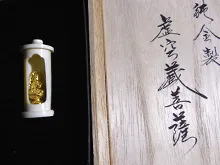 純金製
虚空蔵菩薩